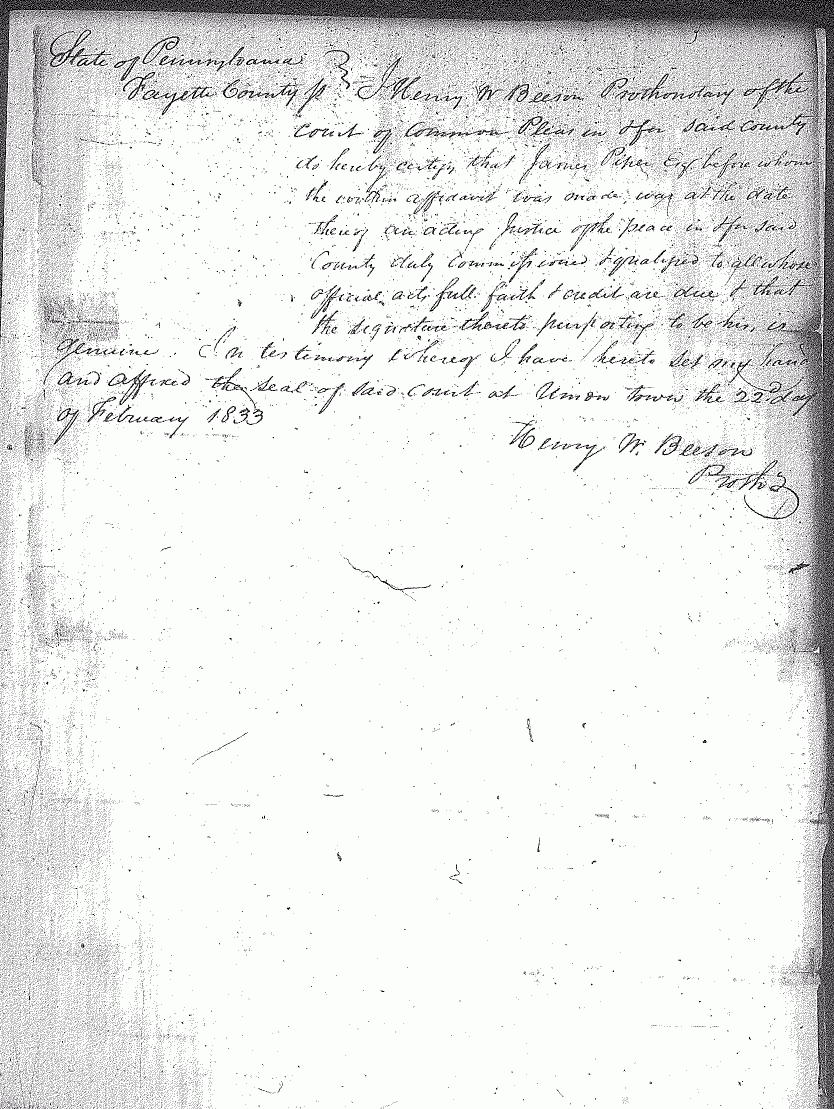 State of Pennsylvania
Fayette County ss } I Henry W Beeson Prothonotary of the
Court of Common Pleas in & for said County
do hereby certify that James Piper Esq before whom
the within affidavit was made, was at the date
thereof an acting Justice of the peace in & for said
County duly commissioned & qualified to all whose
official acts full faith & credit are due & that
the signature thereto purporting to be his, is
genuine. In testimony whereof I have hereto set my hand
and affixed the seal of said Court at Union town the 22d day
of February 1833
Henry W. Beeson
Prothy